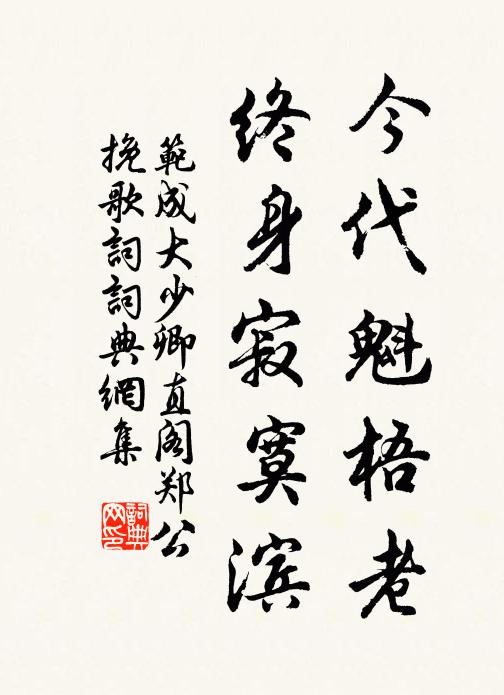 今代魁梧老
终身寂寞滨
範成大少卿直阁郑公
挽歌詞詞典網集
詞典网印